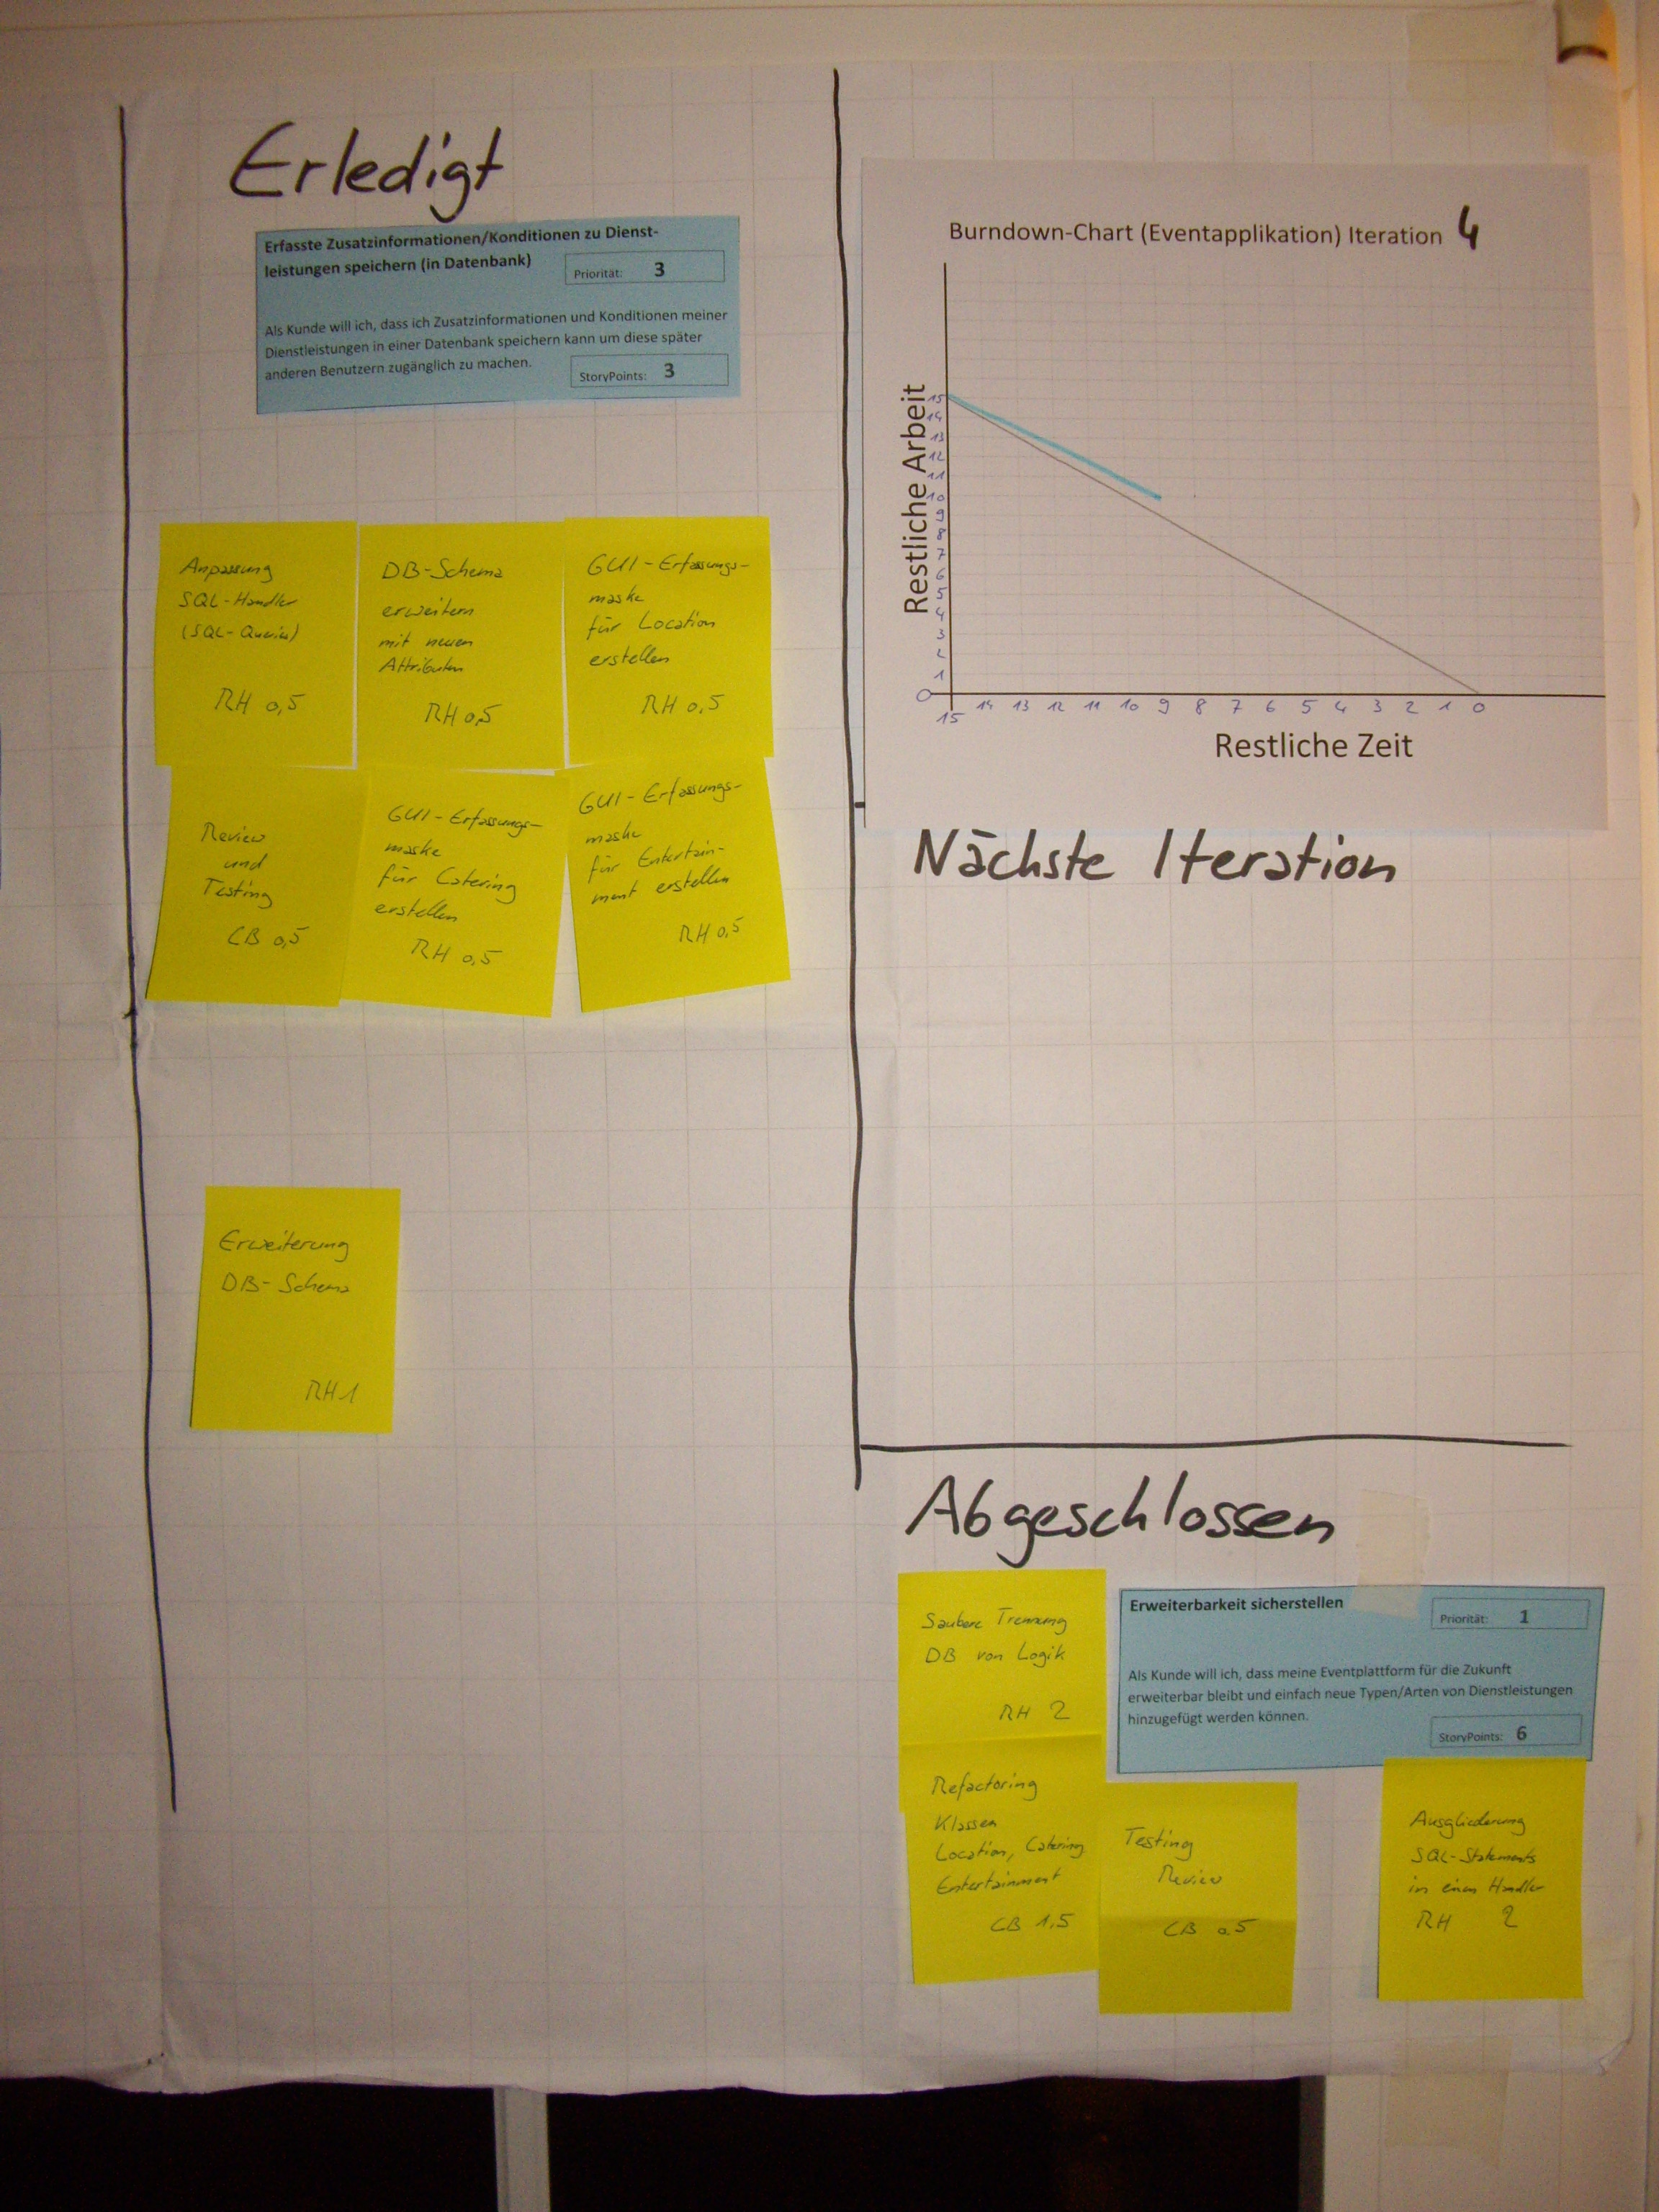 Erledigt
Erfasste Zusatzinformationen/Konditionen zu Dienst-
leistungen speichern (in Datenbank)
Priorität: 3
Als Kunde will ich, dass ich Zusatzinformationen und Konditionen meiner
Dienstleistungen in einer Datenbank speichern kann um diese später
anderen Benutzern zugänglich zu machen.
StoryPoints: 3
Anpassung
SQL-Handler
(SQL-Queries)
RH 0,5
DB-Schema
erweitern
mit neuen
Attributen
RH 0,5
GUI-Erfassungs-
maske
für Location
erstellen
RH 0,5
Review
und
Testing
CB 0,5
GUI-Erfassungs-
maske
für Catering
erstellen
RH 0,5
GUI-Erfassungs-
maske
für Entertain-
ment erstellen
RH 0,5
Erweiterung
DB-Schema
RH 1
Burndown-Chart (Eventapplikation) Iteration 4
Restliche Arbeit
15
14
13
12
11
10
9
8
7
6
5
4
3
2
1
0
15 14 13 12 11 10 9 8 7 6 5 4 3 2 1 0
Restliche Zeit
Nächste Iteration
Abgeschlossen
Saubere Trennung
DB von Logik
RH 2
Erweiterbarkeit sicherstellen
Priorität: 1
Als Kunde will ich, dass meine Eventplattform für die Zukunft
erweiterbar bleibt und einfach neue Typen/Arten von Dienstleistungen
hinzugefügt werden können.
StoryPoints: 6
Refactoring
Klassen
Location, Catering
Entertainment
CB 1,5
Testing
Review
CB 0,5
Ausgliederung
SQL-Statements
in einen Handler
RH 2